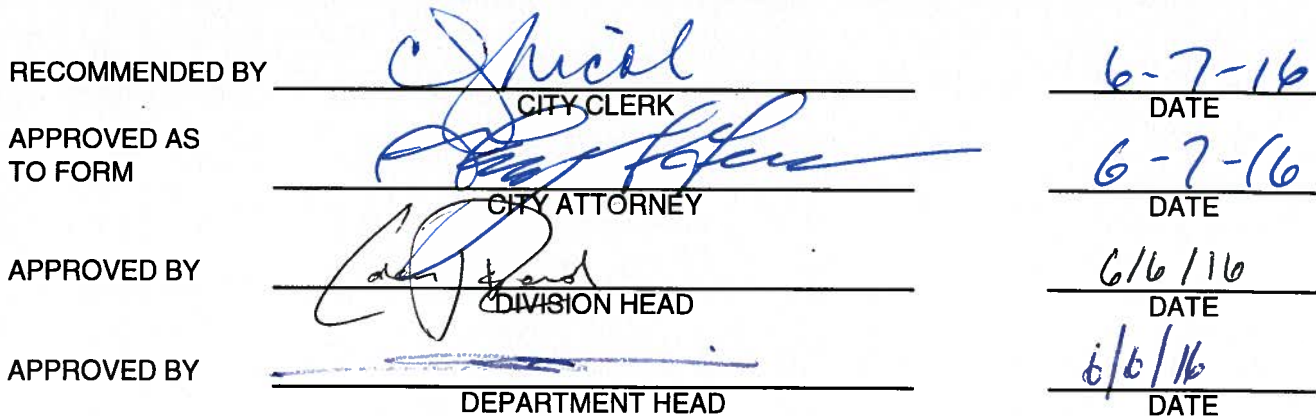 RECOMMENDED BY 6-7-16
CITY CLERK DATE
APPROVED AS
TO FORM 6-7-16
CITY ATTORNEY DATE
APPROVED BY 6/6/16
DIVISION HEAD DATE
APPROVED BY 6/6/16
DEPARTMENT HEAD DATE